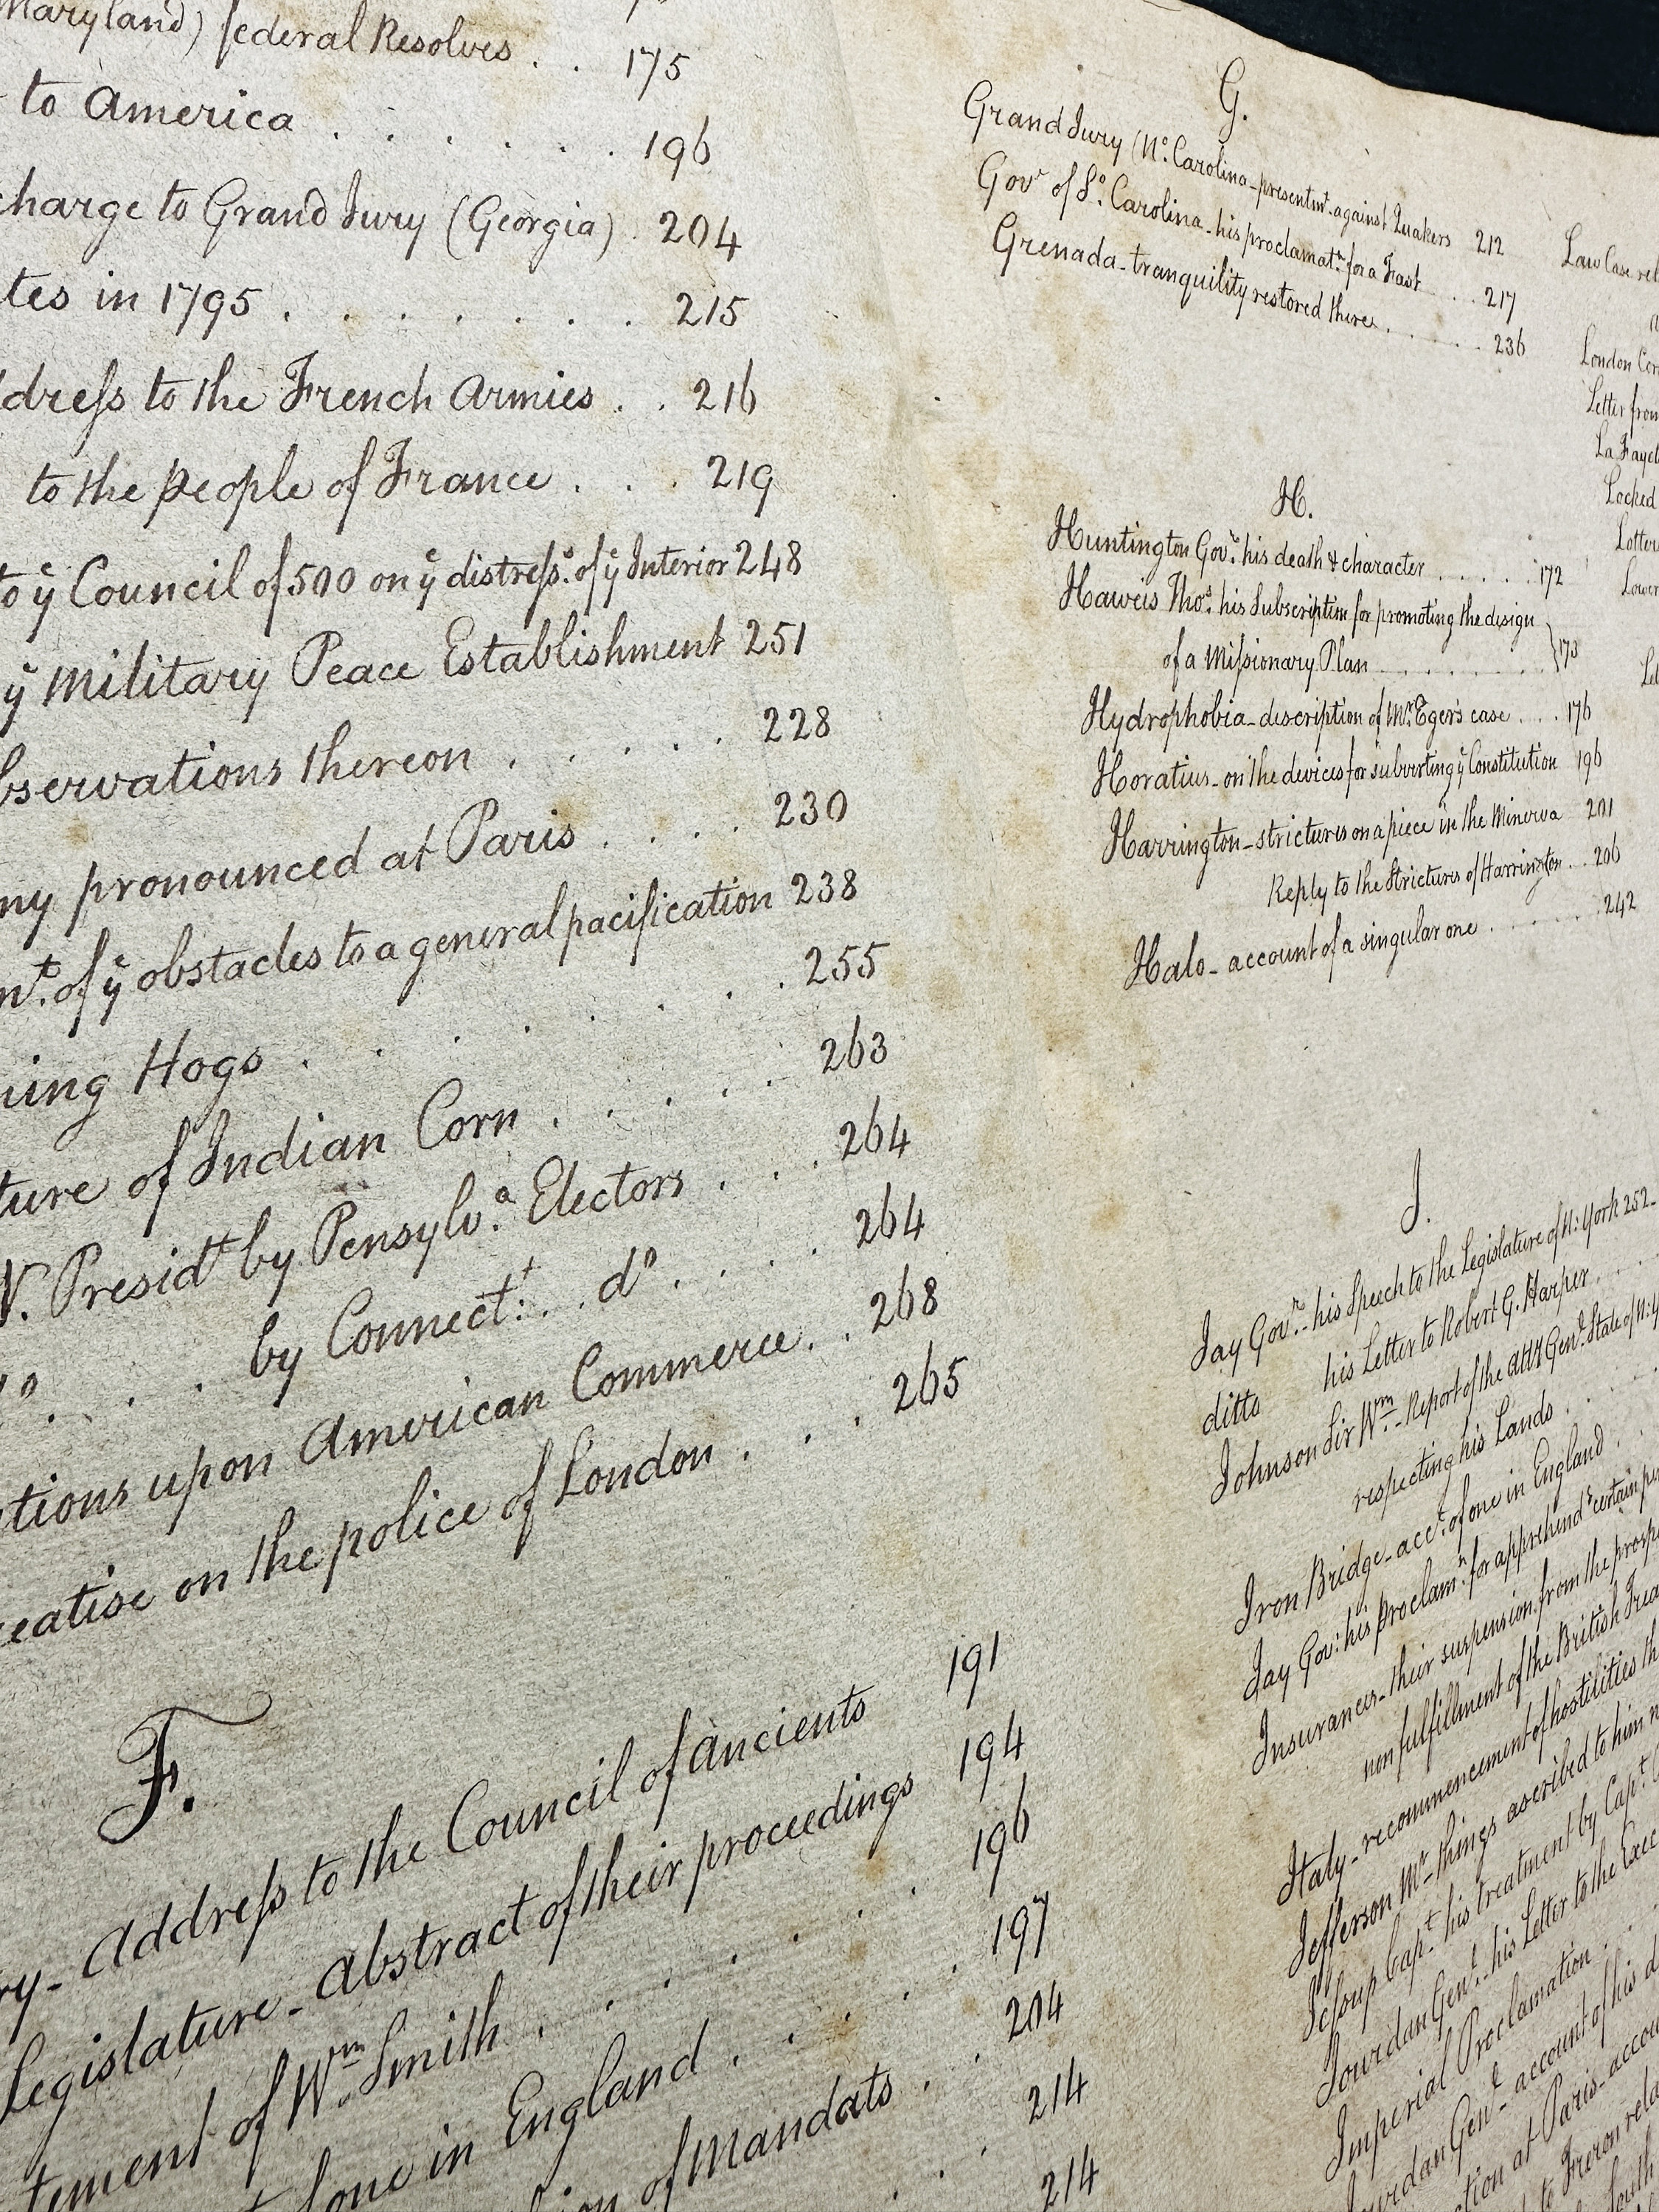 Maryland) federal Resolves . . 175
to America . . . . . . 196
charge to Grand Jury (Georgia) . 204
in 1795 . . . . . . . 215
to the French Armies . . 216
to the people of France . . . 219
to yͤ Council of 500 on yͤ distresss. of yͤ Interior 248
yͤ Military Peace Establishment 251
thereon . . . . . 228
pronounced at Paris . . . . 230
of yͤ obstacles to a general pacification 238
Hogs . . . . . . . 255
of Indian Corn . . . . . 263
V. Presidt by Pensylva. Electors . . . 264
by Connect: . . do . . . . 264
upon American Commerce . . 268
on the police of London . . . 265
F.
Address to the Council of Ancients 191
Legislature - Abstract of their proceedings 194
of Wm Smith . . . . . . . 196
in England . . . . . 197
of Mandats . . 204
214
214
G.
Grand Jury (No. Carolina - presentmt. against Quakers 212
Govr of So. Carolina - his proclamatn. for a Fast . . . 217
Grenada - tranquility restored there . . . . . . 236
H.
Huntington Govr. his death & character . . . . . . 172
Haweis Thos. his Subscription for promoting the design
of a Missionary Plan . . . . . . . . } 173
Hydrophobia - description of Mr. Eger's case . . . . 176
Horatius - on the devices for subverting yͤ Constitution 196
Harrington - strictures on a piece in the Minerva 201
Reply to the Strictures of Harrington . . 206
Halo - account of a singular one . . . . . . . 242
J.
Jay Govr. - his Speech to the Legislature of N: York 252 -
ditto his Letter to Robert G. Harper . . . .
Johnson Sir Wm - Report of the Atty Genl. State of N: Y
respecting his Lands . . . .
Iron Bridge - acct. of one in England . .
Jay Gov: his Proclamn. for apprehendg certain
Insurances - their suspension from the
non fulfillment of the British
Italy - recommencement of hostilities
Jefferson Mr - things ascribed to him
Jessup Capt. his treatment by Capt.
Jourdan Genl. - his Letter to the
Imperial Proclamation . . .
Jourdan Genl - account of his
at Paris -
to Freron
Law Case
London
Letter from
La
Locked